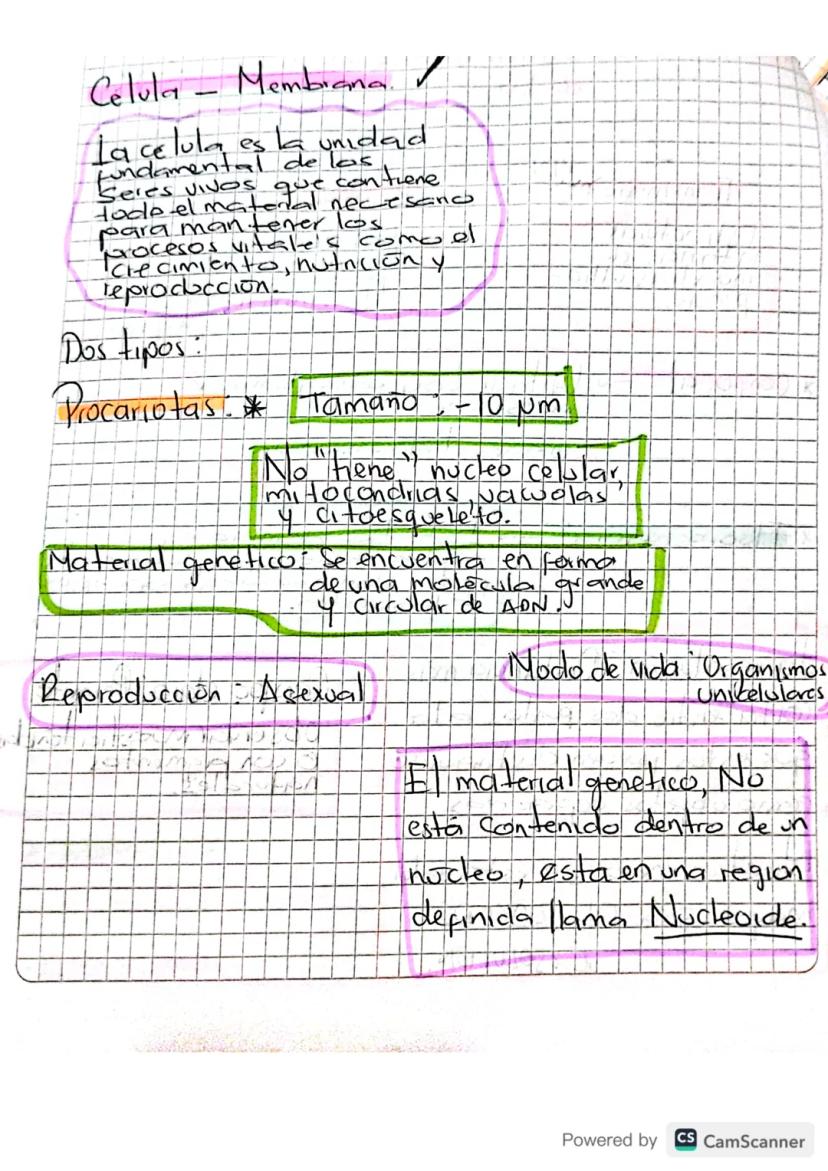 Célula - Membrana. ✓
La celula, es la unidad
fundamental de los
Seres vivos que contiene
todo el material necesario
para mantener los
procesos vitales como el
crecimiento, nutrición y
reproducción.
Dos tipos:
Procariotas: * Tamaño: -10 µm
No "tiene" nucleo celular,
mitocondrias, vacuolas
y citoesqueleto.
Material genetico: Se encuentra en forma
de una molécula grande
y circular de ADN.
Modo de vida: Organismos
unicelulares
Reproducción: Asexual
El material genetico, No
está contenido dentro de un
nucleo, esta en una region
definida llama Nucleoide.
Powered by CS CamScanner